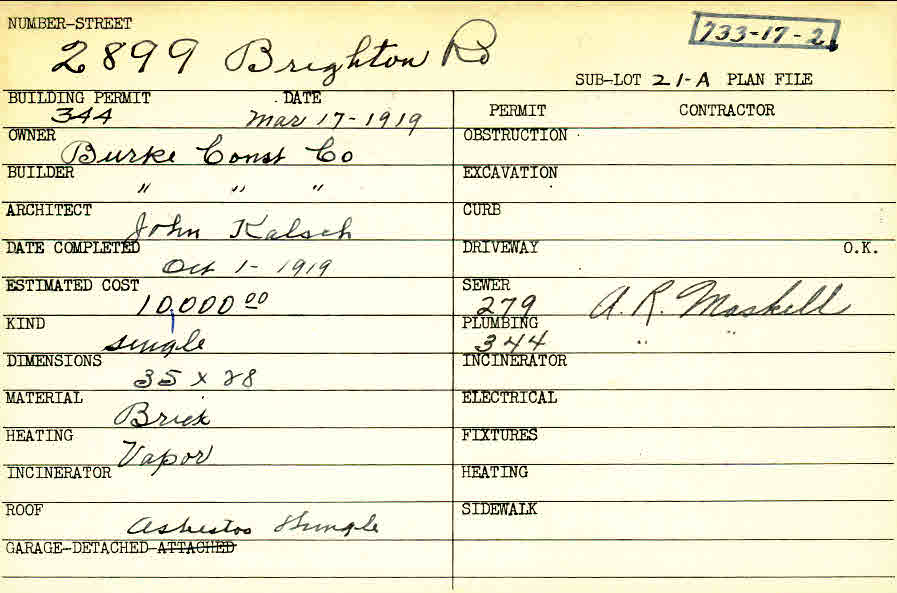 NUMBER-STREET
733-17-2
2899 Brighton Rd
SUB-LOT 21-A PLAN FILE
BUILDING PERMIT DATE
344 Mar 17-1919
OWNER
Burke Const Co
BUILDER
" " "
ARCHITECT
John Kalsch
DATE COMPLETED
Oct 1-1919
ESTIMATED COST
10,000 00
KIND
single
DIMENSIONS
35 x 28
MATERIAL
Brick
HEATING
Vapor
INCINERATOR
ROOF
Asbestos Shingle
GARAGE-DETACHED-ATTACHED
PERMIT CONTRACTOR
OBSTRUCTION
EXCAVATION
CURB
DRIVEWAY O.K.
SEWER
279 A. R. Maskell
PLUMBING
344 " "
INCINERATOR
ELECTRICAL
FIXTURES
HEATING
SIDEWALK